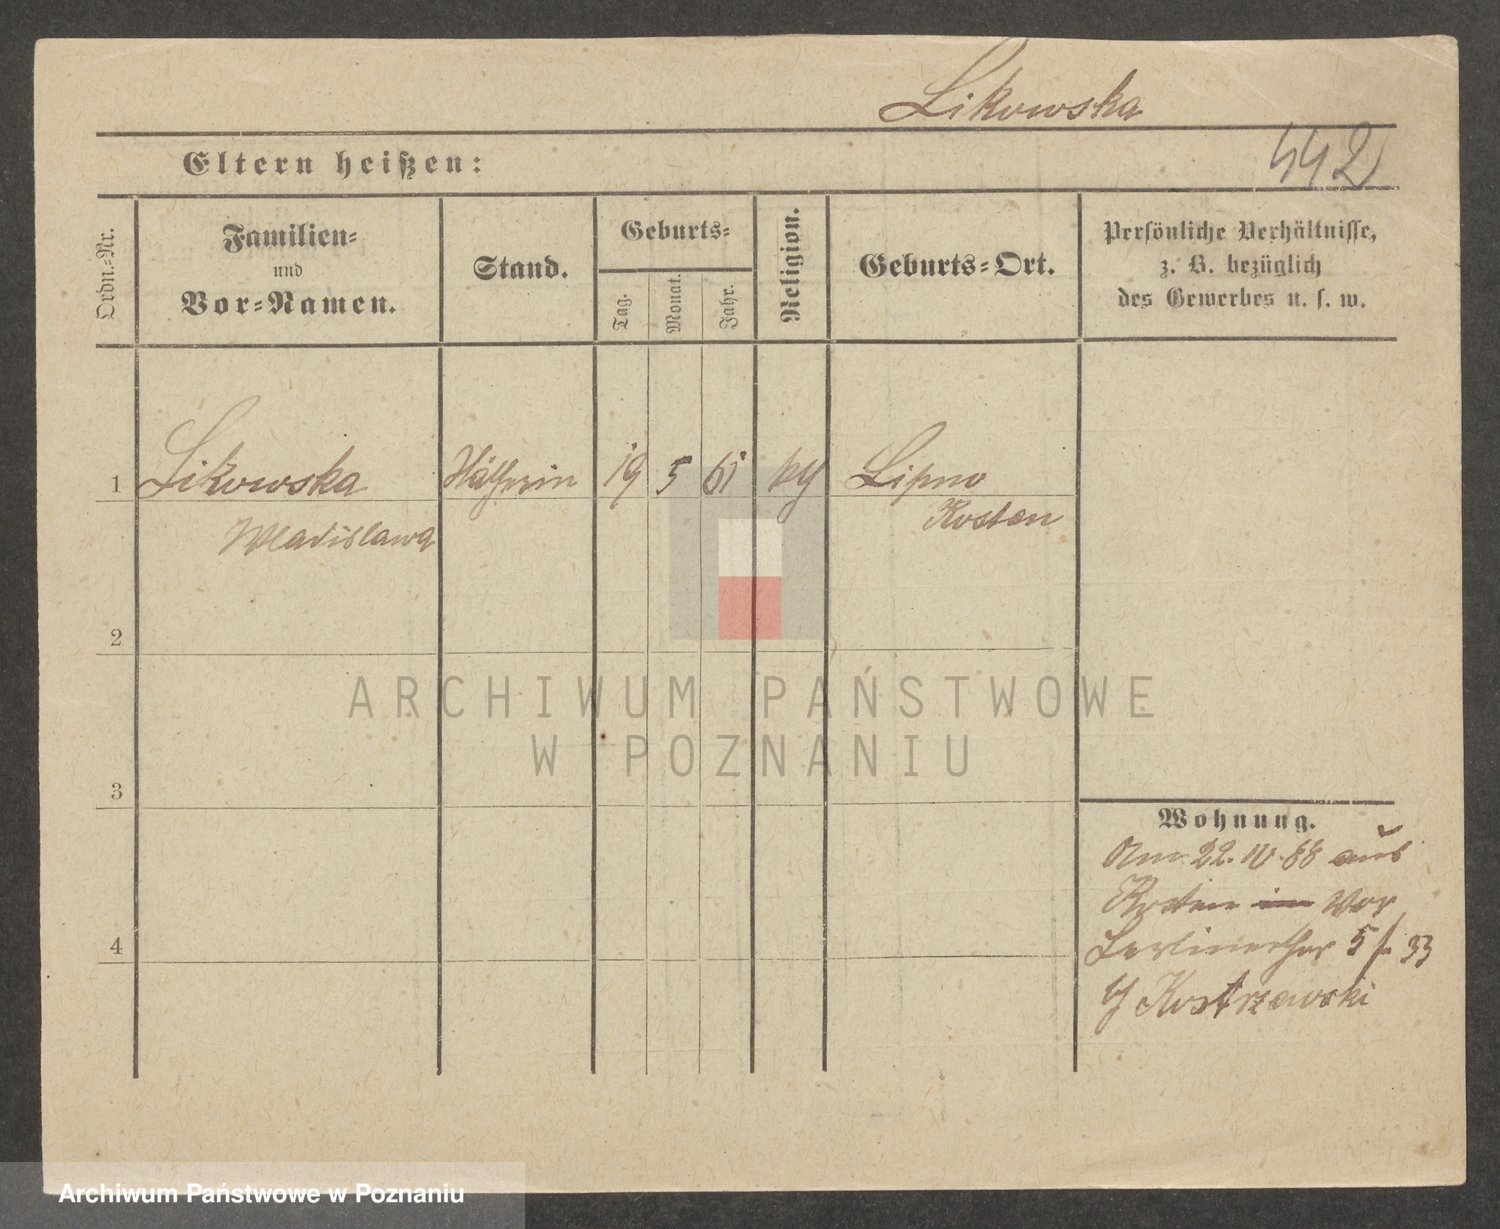 Likowska
442
Eltern heißen:
Ordn.-Nr.
Familien-
und
Vor-Namen.
Stand.
Geburts-
Tag.
Monat.
Jahr.
Religion.
Geburts-Ort.
Persönliche Verhältnisse,
z. B. bezüglich
des Gewerbes u. s. w.
1 Likowska 19 5 61 Lipno
Wladislawa Kosten
2
ARCHIWUM PAŃSTWOWE
W POZNANIU
3
Wohnung.
Am 22. IV. 88 aus
Kosten Vor
Berlinerthor 5 33
4
Kostrzewski
Archiwum Państwowe w Poznaniu